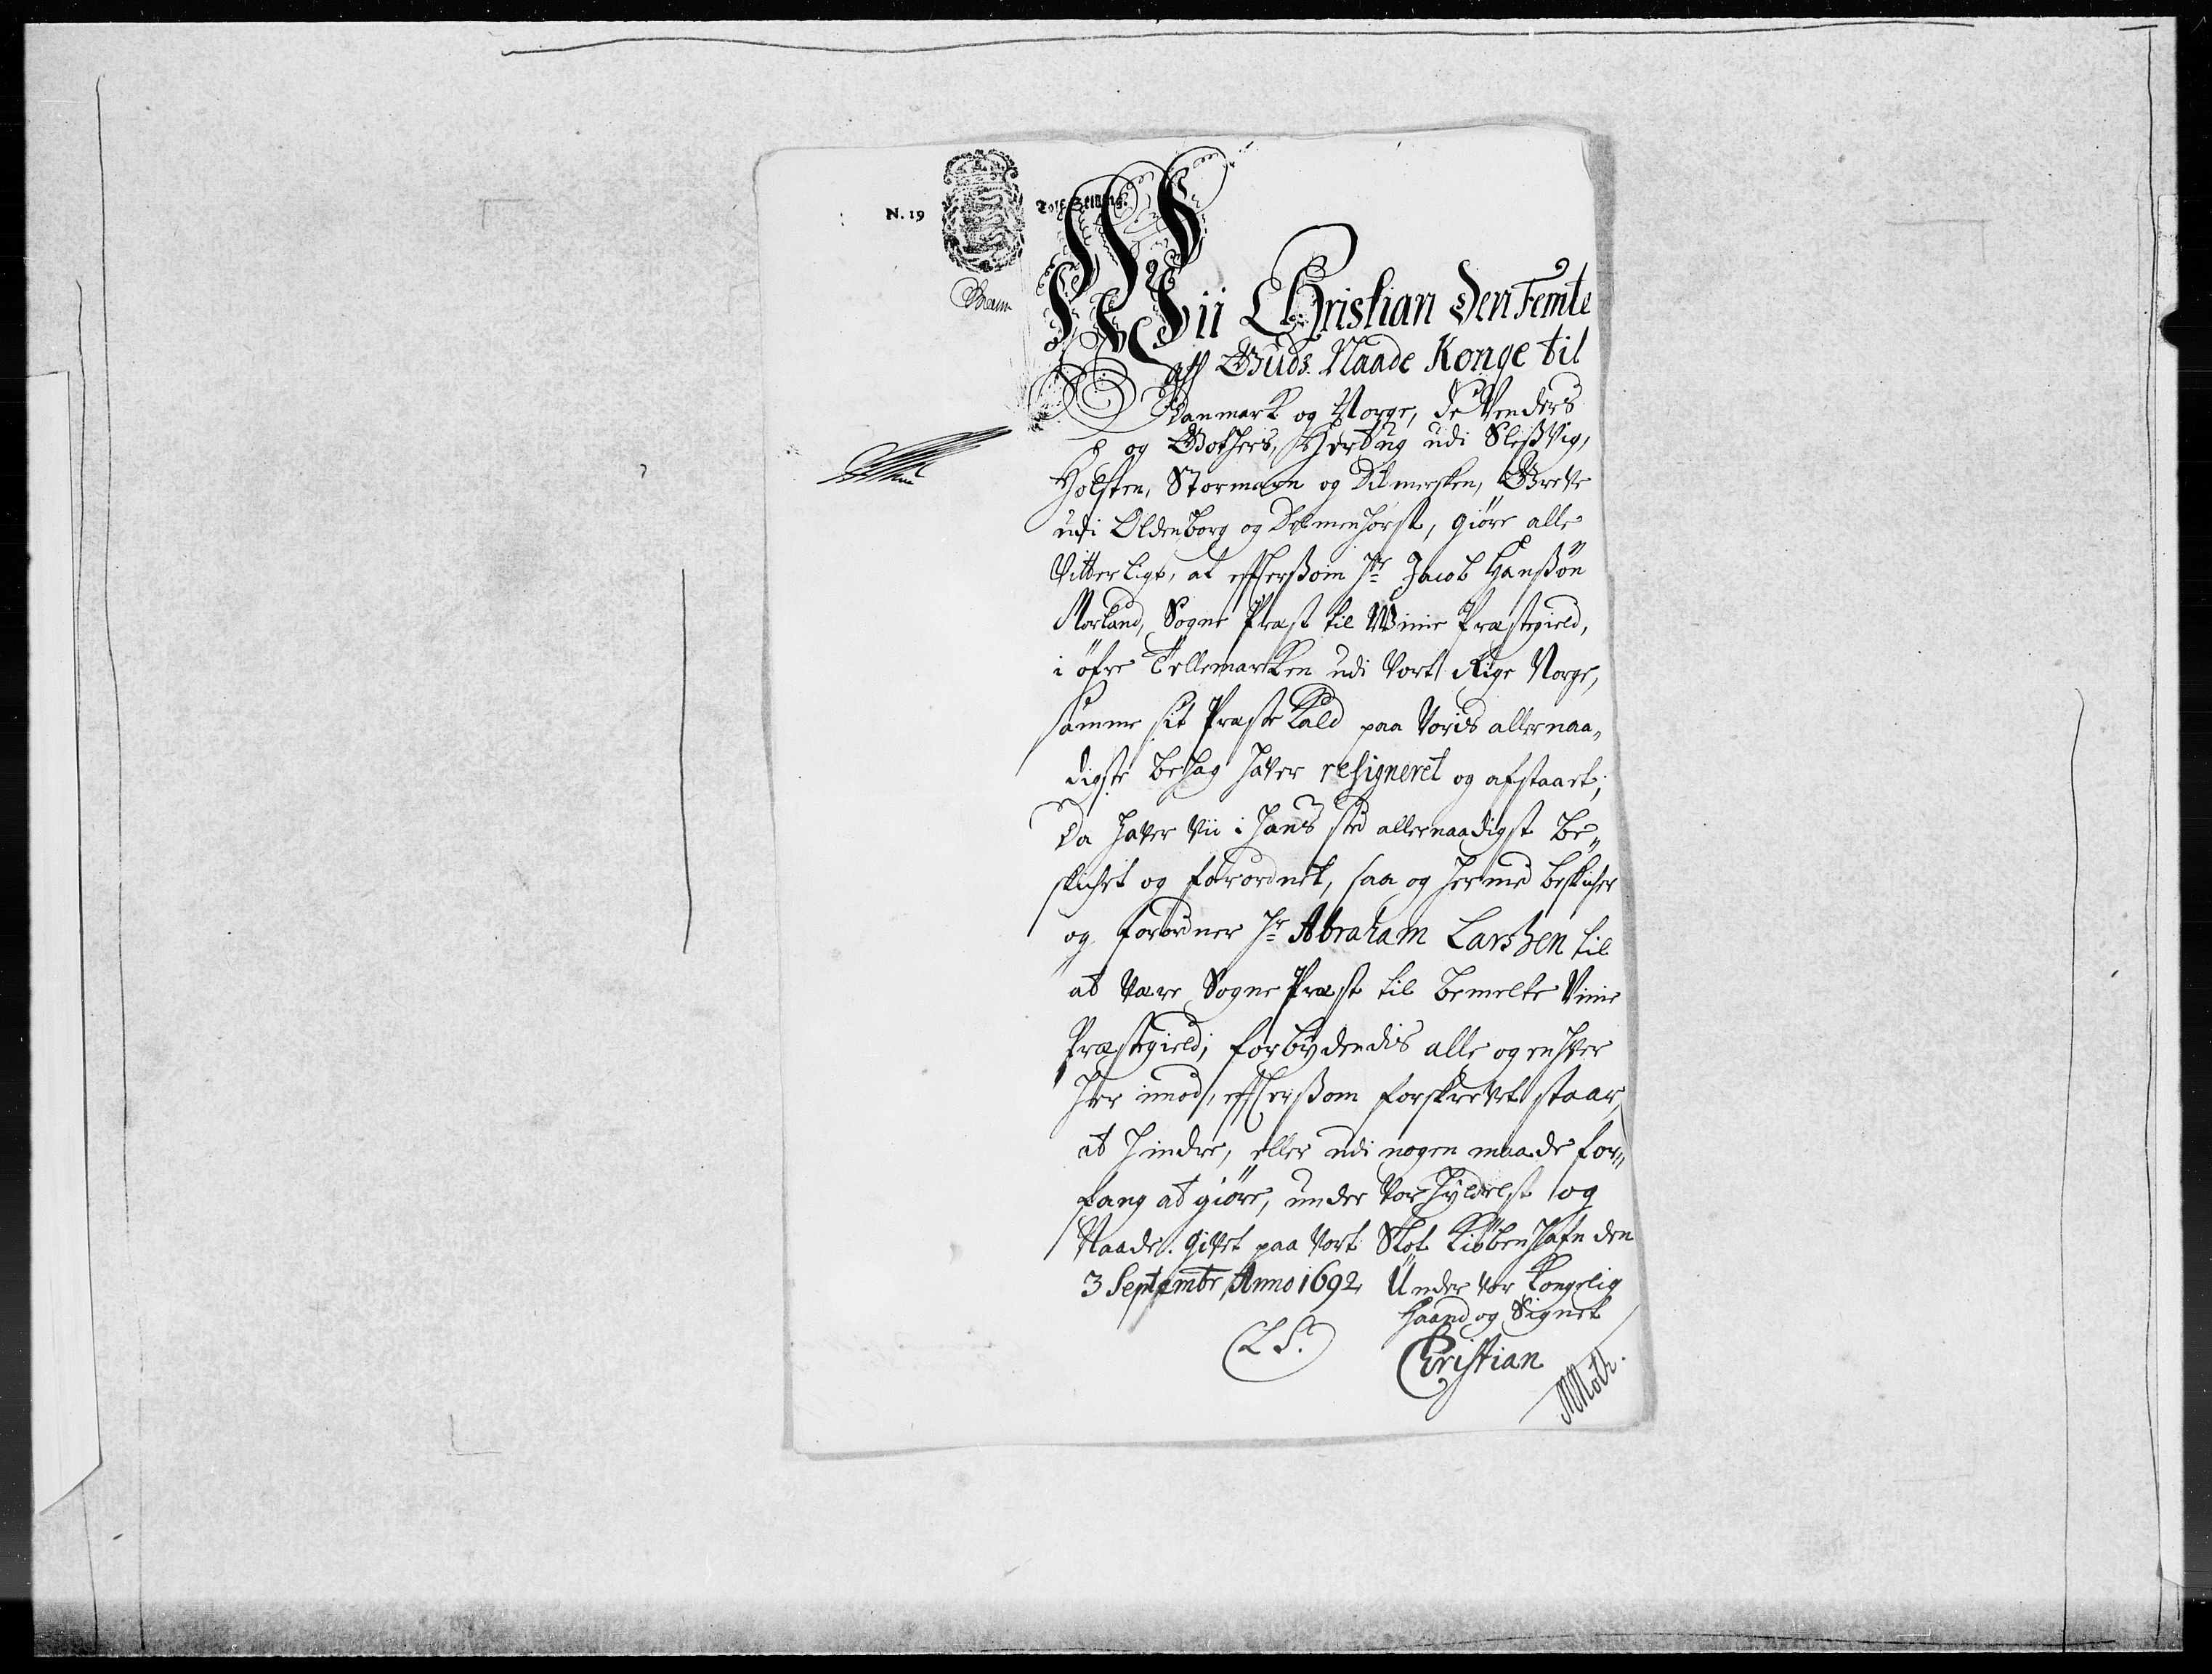 N. 19
Tolf Skilling.
Vii Christian den Femte
aff Guds Naade Konge til
Danmark og Norge, de Venders
og Gothers, Hertug udi Slesvig,
Holsten, Stormarn og Ditmersken, Greve
udi Oldenborg og Delmenhorst, giöre alle
Vitterligt, at effterssom Hr Jacob Hanssön
Morland, Sogne Præst til Winie Præstegield,
i öfre Tellemarken udi Vort Rige Norge,
samme sit Præste Kald paa Voris allernaa„
digste behag haver resigneret og afstaaet;
Da haver Vii i hans sted allernaadigst be„
skichet og forordnet, saa og hermed beskicher
og forordner Hr Abraham Larssen til
at være Sogne Præst til bemelte Vinie
Præstegield; forbydendis alle og enhver
her imod, effterssom forskrevet staar,
at hindre, eller udi nogen maade for„
fang at giöre, under Vor hyldest og
Naade. Givet paa Vort Slot Kiöbenhafn den
3 Septembr Anno 1692 Under Vor Kongelig
Haand og Signet
(L S.)
Christian
MMoth.